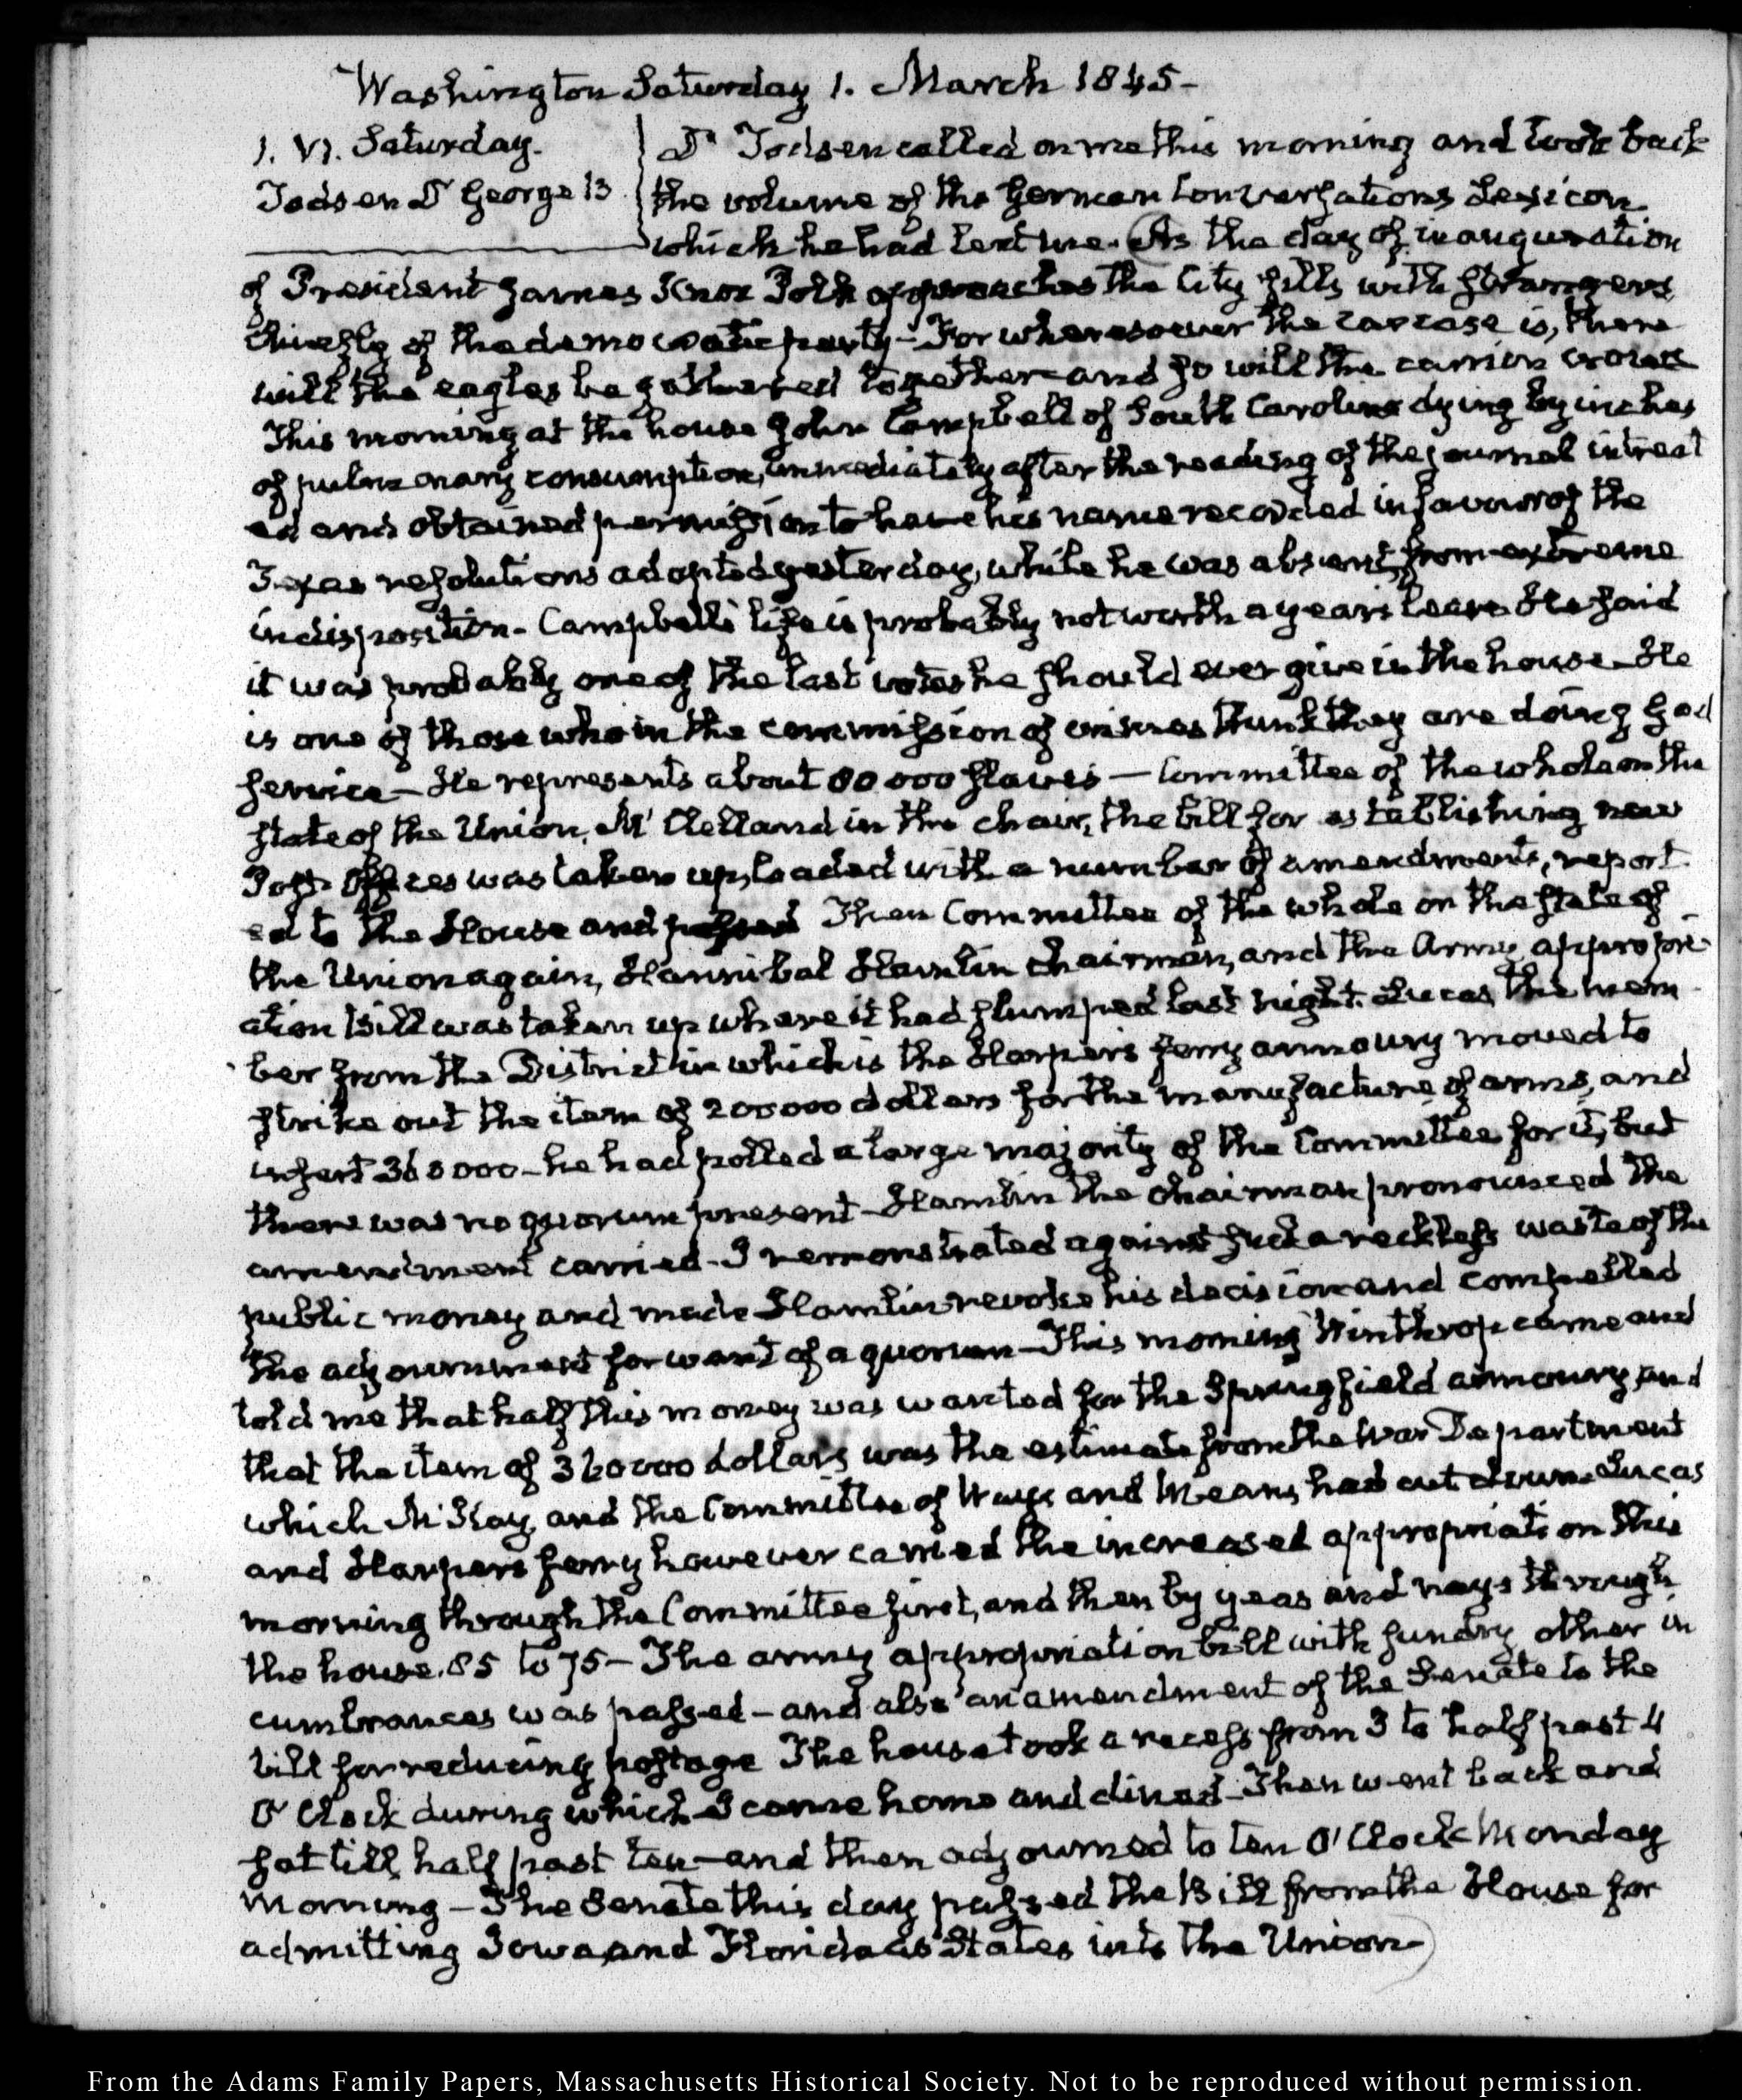 Washington Saturday 1. March 1845-
1. VI. Saturday.
Todsen Dr George B
Dr Todsen called on me this morning and took back
the volume of the German Conversations Lexicon
which he had lent me. As the day of inauguration
of President James Knox Polk approaches the City fills with strangers
chiefly of the democratic party - For wheresoever the carcase is, there
will the eagles be gathered together and so will the carrion crows
This morning at the house John Campbell of South Carolina dying by inches
of pulmonary consumption, immediately after the reading of the journal intreat
ed and obtained permission to have his name recorded in favour of the
Texas resolutions adopted yesterday, while he was absent from extreme
indisposition - Campbell's life is probably not worth a years lease He said
it was probably one of the last votes he should ever give in the house - He
is one of those who in the commission of crimes think they are doing God
service - He represents about 80 000 slaves — Committee of the whole on the
state of the Union, McClelland in the chair, the bill for establishing new
Post Offices was taken up, loaded with a number of amendments, report
ed to the House and passed Then Committee of the whole on the state of
the Union again, Hannibal Hamlin chairman, and the Army appropri-
ation bill was taken up where it had slumped last night. Lucas, the mem-
ber from the District in which is the Harpers ferry armoury moved to
strike out the item of 200000 dollars for the manufacture of arms, and
insert 360000 - he had polled a large majority of the Committee for it, but
there was no quorum present - Hamlin the chairman pronounced the
amendment carried - I remonstrated against such a reckless waste of the
public money and made Hamlin revoke his decision and compelled
the adjournment for want of a quorum - This morning Winthrop came and
told me that half this money was wanted for the Springfield armoury, and
that the item of 360000 dollars was the estimate from the War Department
which McKay, and the Committee of Ways and Means, had cut down. Lucas
and Harpers ferry however carried the increased appropriation this
morning through the Committee first, and then by yeas and nays through
the house. 85 to 75 - The army appropriation bill with sundry other in
cumbrances was passed - and also an amendment of the Senate to the
bill for reducing postage The house took a recess from 3 to half past 4
O'Clock during which I came home and dined - Then went back and
sat till half past ten - and then adjourned to ten O'Clock Monday
morning - The Senate this day passed the Bill from the House for
admitting Iowa, and Florida as States into the Union
From the Adams Family Papers, Massachusetts Historical Society. Not to be reproduced without permission.